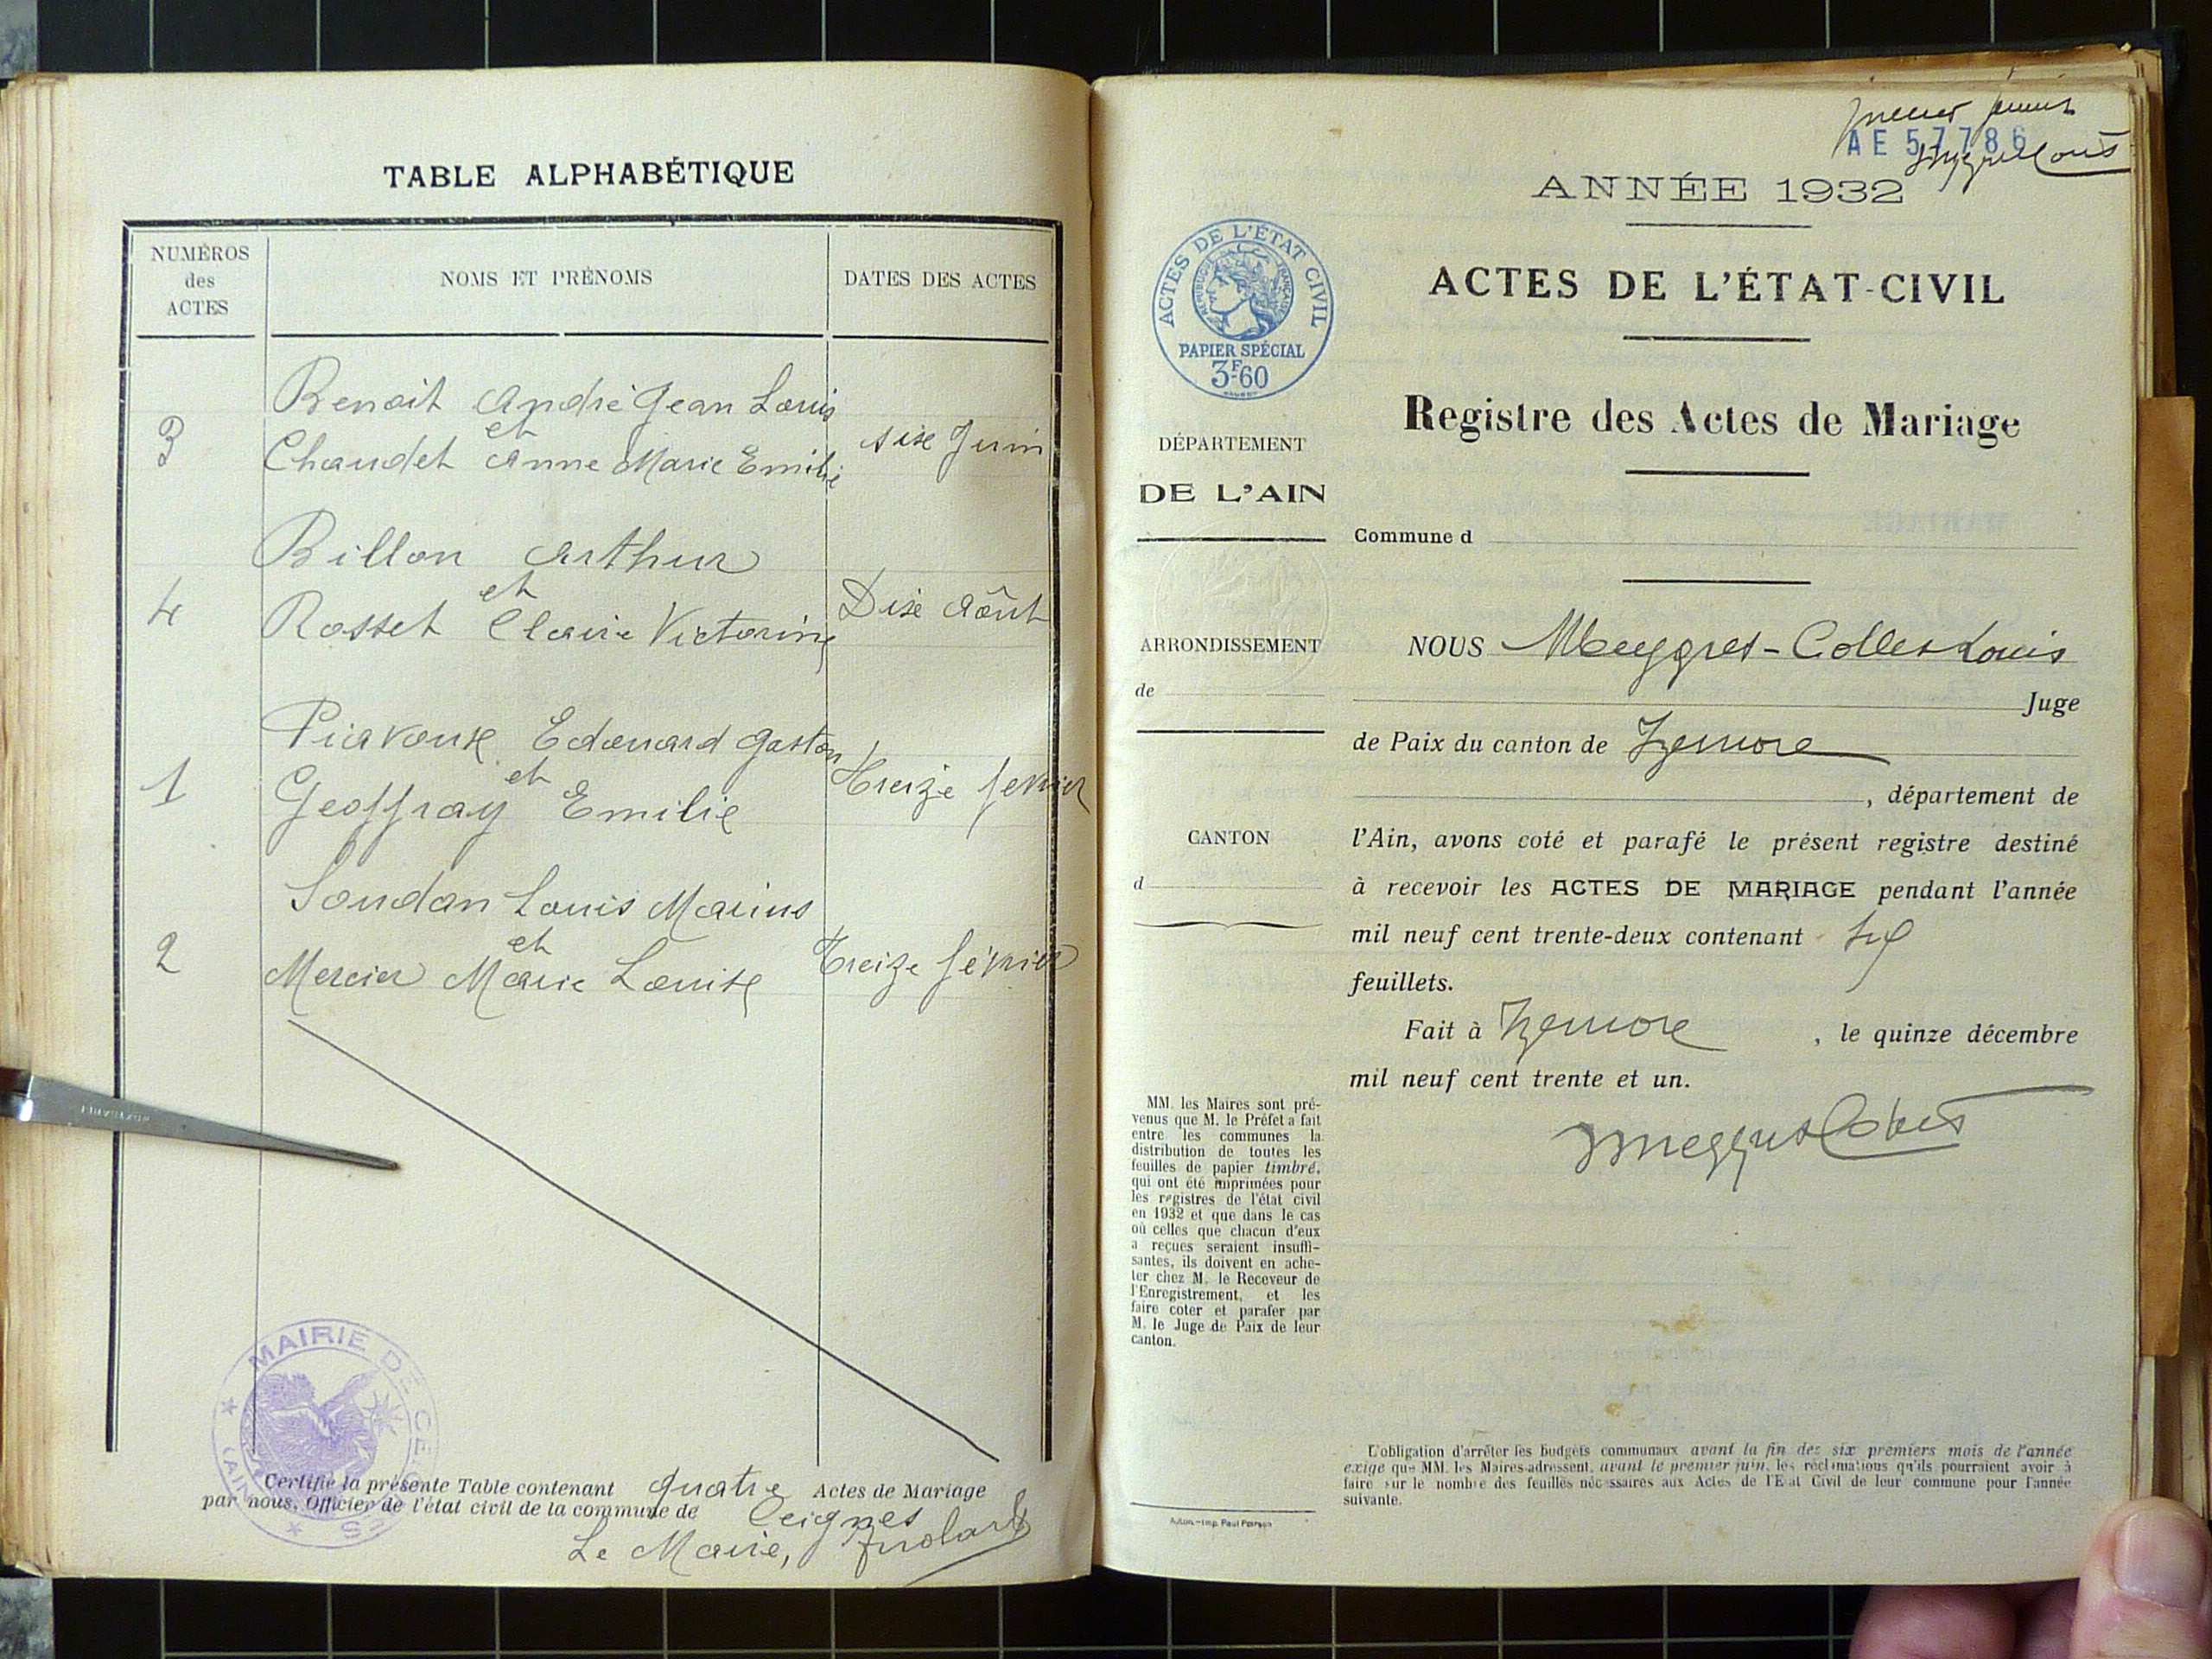 TABLE ALPHABÉTIQUE
NUMÉROS
des
ACTES
NOMS ET PRÉNOMS
DATES DES ACTES
Benoit André Jean Louis
et
3
Chaudet Anne Marie Emilie
sise Juin
Billon Arthur
et
4
Rosset Claire Victorine
Dix Août
Piavoux Edouard Gaston
et
1
Geoffray Emilie
Treize février
Soudan Louis Marius
et
2
Mercier Marie Louise
Treize février
MAIRIE DE CEIGNES
(AIN)
Certifie la présente Table contenant quatre Actes de Mariage
par nous, Officier de l'état civil de la commune de Ceignes
Le Maire,
premier
AE 57786
ANNÉE 1932
ACTES DE L'ÉTAT CIVIL
RÉPUBLIQUE FRANÇAISE
PAPIER SPÉCIAL
3F60
ACTES DE L'ÉTAT-CIVIL
Registre des Actes de Mariage
DÉPARTEMENT
DE L'AIN
Commune d
ARRONDISSEMENT
de
CANTON
d
NOUS Meygret-Collet Louis
Juge
de Paix du canton de Izernore
, département de
l'Ain, avons coté et parafé le présent registre destiné
à recevoir les ACTES DE MARIAGE pendant l'année
mil neuf cent trente-deux contenant
feuillets.
Fait à Izernore , le quinze décembre
mil neuf cent trente et un.
MM. les Maires sont pré-
venus que M. le Préfet a fait
entre les communes la
distribution de toutes les
feuilles de papier timbré,
qui ont été imprimées pour
les registres de l'état civil
en 1932 et que dans le cas
où celles que chacun d'eux
a reçues seraient insuffi-
santes, ils doivent en ache-
ter chez M. le Receveur de
l'Enregistrement, et les
faire coter et parafer par
M. le Juge de Paix de leur
canton.
L'obligation d'arrêter les budgets communaux avant la fin des six premiers mois de l'année
exige que MM. les Maires adressent, avant le premier juin, les réclamations qu'ils pourraient avoir à
faire sur le nombre des feuilles nécessaires aux Actes de l'Etat Civil de leur commune pour l'année
suivante.